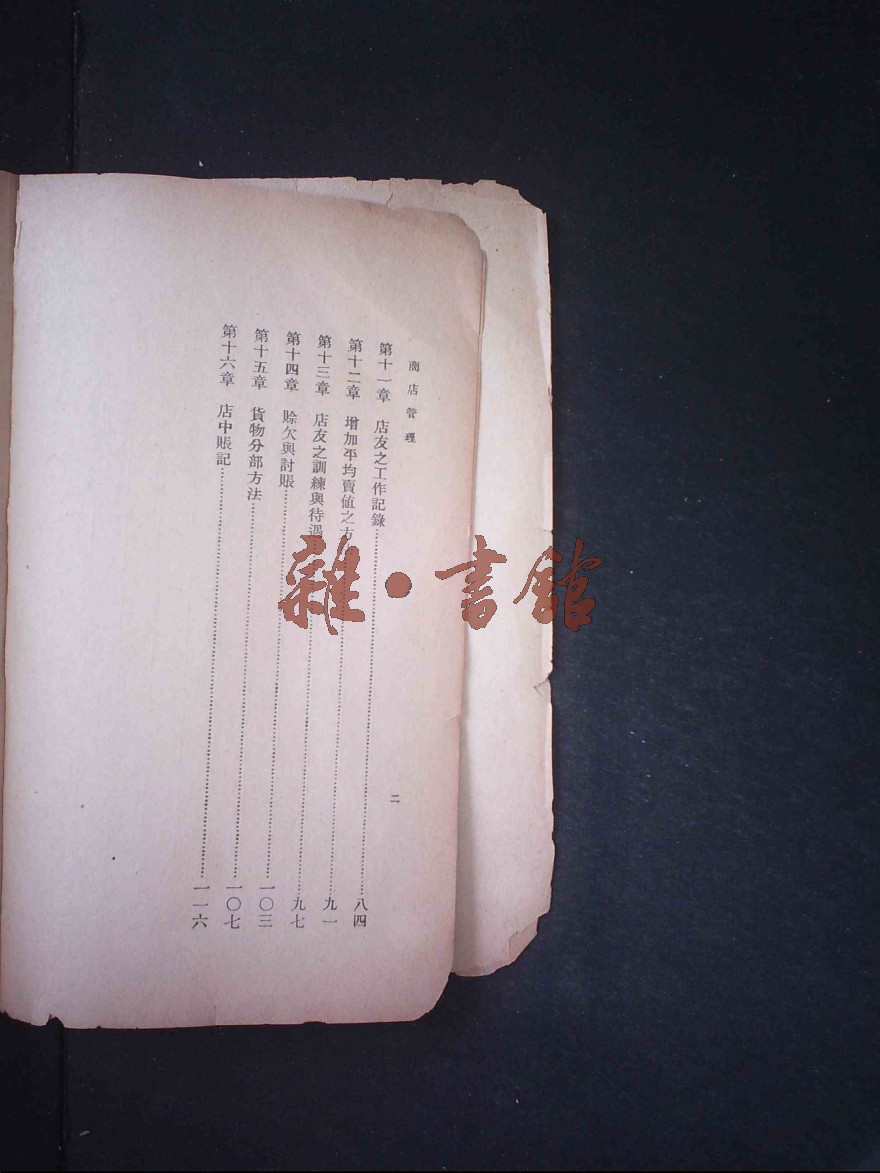 商店管理
二
第十一章 店友之工作記錄…………八四
第十二章 增加平均賣值之方…………九一
第十三章 店友之訓練與待遇…………九七
第十四章 賒欠與討賬…………一〇三
第十五章 貨物分部方法…………一〇七
第十六章 店中賬記…………一一六
雜·書館